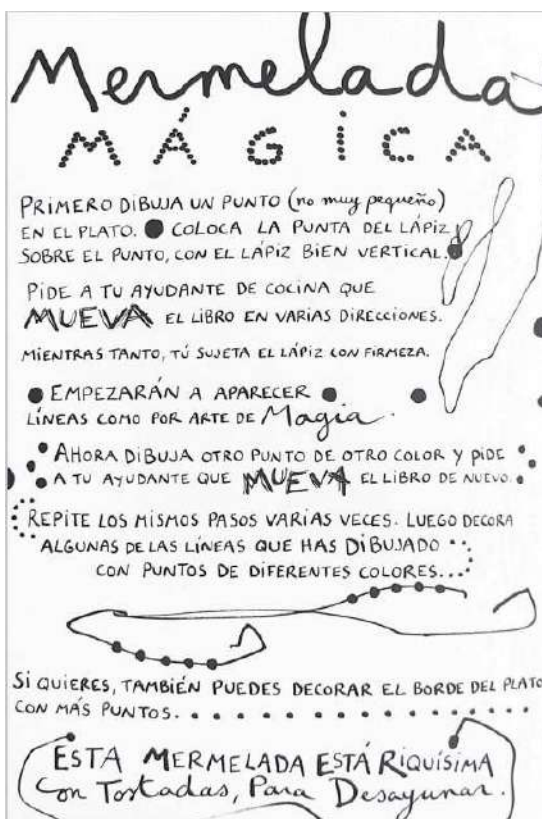 Mermelada
MÁGICA
PRIMERO DIBUJA UN PUNTO (no muy pequeño)
EN EL PLATO. COLOCA LA PUNTA DEL LÁPIZ
SOBRE EL PUNTO, CON EL LÁPIZ BIEN VERTICAL.
PIDE A TU AYUDANTE DE COCINA QUE
MUEVA EL LIBRO EN VARIAS DIRECCIONES.
MIENTRAS TANTO, TÚ SUJETA EL LÁPIZ CON FIRMEZA.
EMPEZARÁN A APARECER
LÍNEAS COMO POR ARTE DE Magia.
AHORA DIBUJA OTRO PUNTO DE OTRO COLOR Y PIDE
A TU AYUDANTE QUE MUEVA EL LIBRO DE NUEVO.
REPITE LOS MISMOS PASOS VARIAS VECES. LUEGO DECORA
ALGUNAS DE LAS LÍNEAS QUE HAS DIBUJADO
CON PUNTOS DE DIFERENTES COLORES...
SI QUIERES, TAMBIÉN PUEDES DECORAR EL BORDE DEL PLATO
CON MÁS PUNTOS.
ESTA MERMELADA ESTÁ RIQUÍSIMA
Con Tostadas, Para Desayunar.